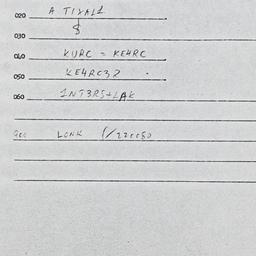 020 A TIXAL1
030 $
040 KURC = KE4RC
050 KE4RC32 .
060 1NT3RS+LAK
LONK